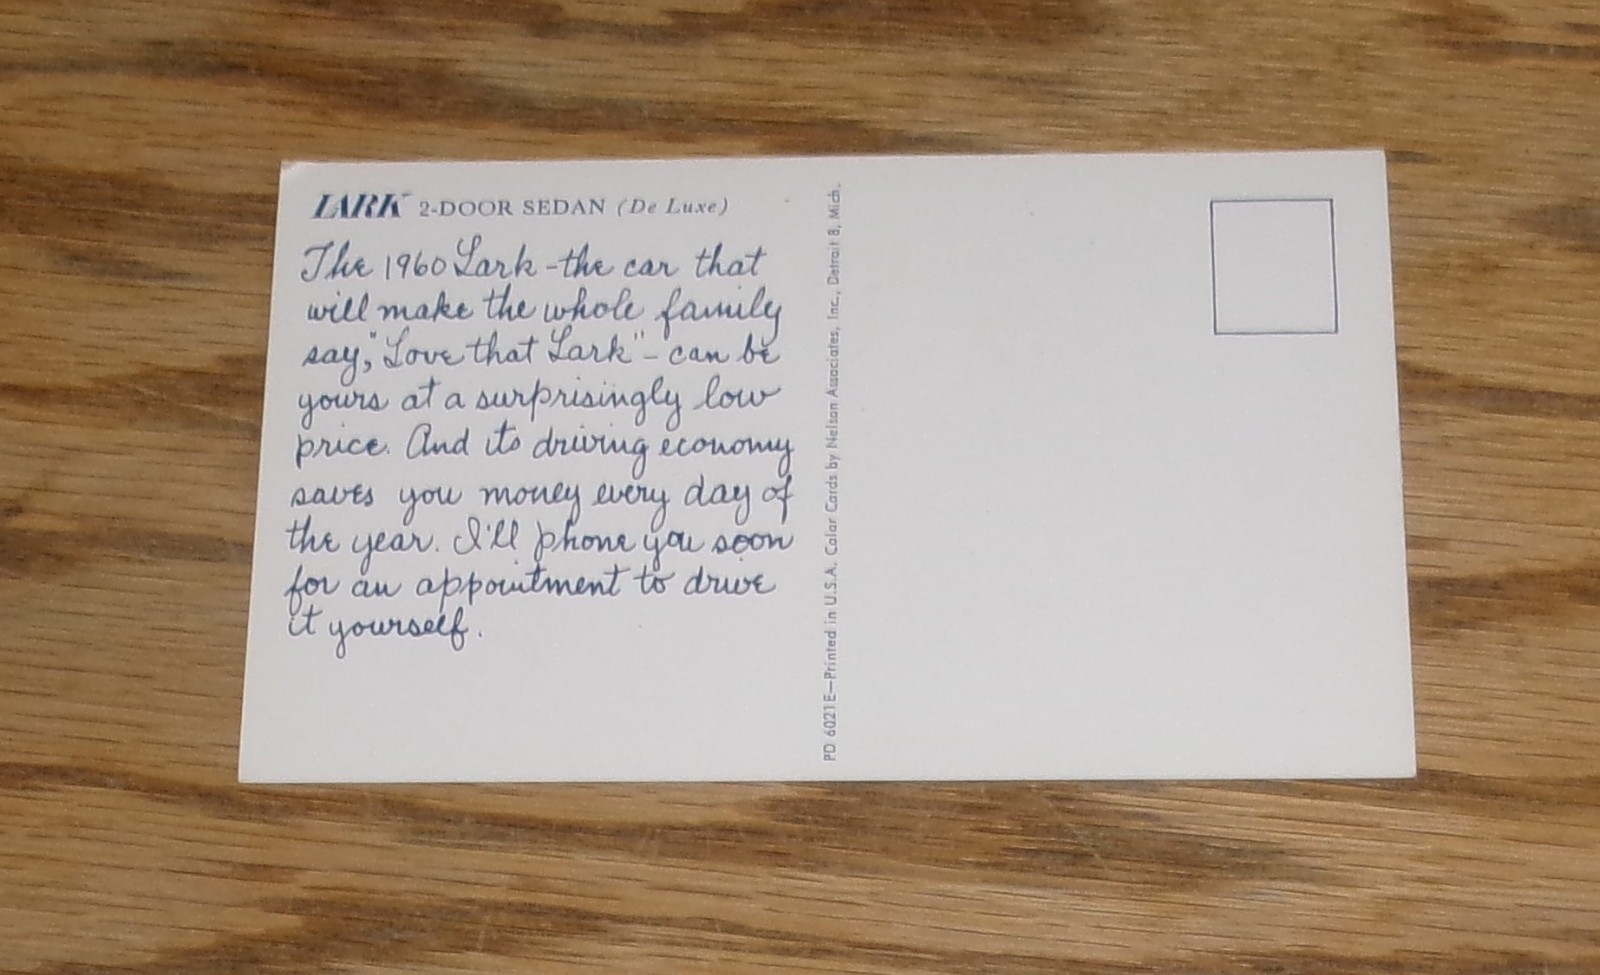 LARK 2-DOOR SEDAN (De Luxe)
The 1960 Lark - the car that
will make the whole family
say, "Love that Lark" - can be
yours at a surprisingly low
price. And its driving economy
saves you money every day of
the year. I'll phone you soon
for an appointment to drive
it yourself.
PD 6021E—Printed in U.S.A. Color Cards by Nelson Associates, Inc., Detroit 8, Mich.